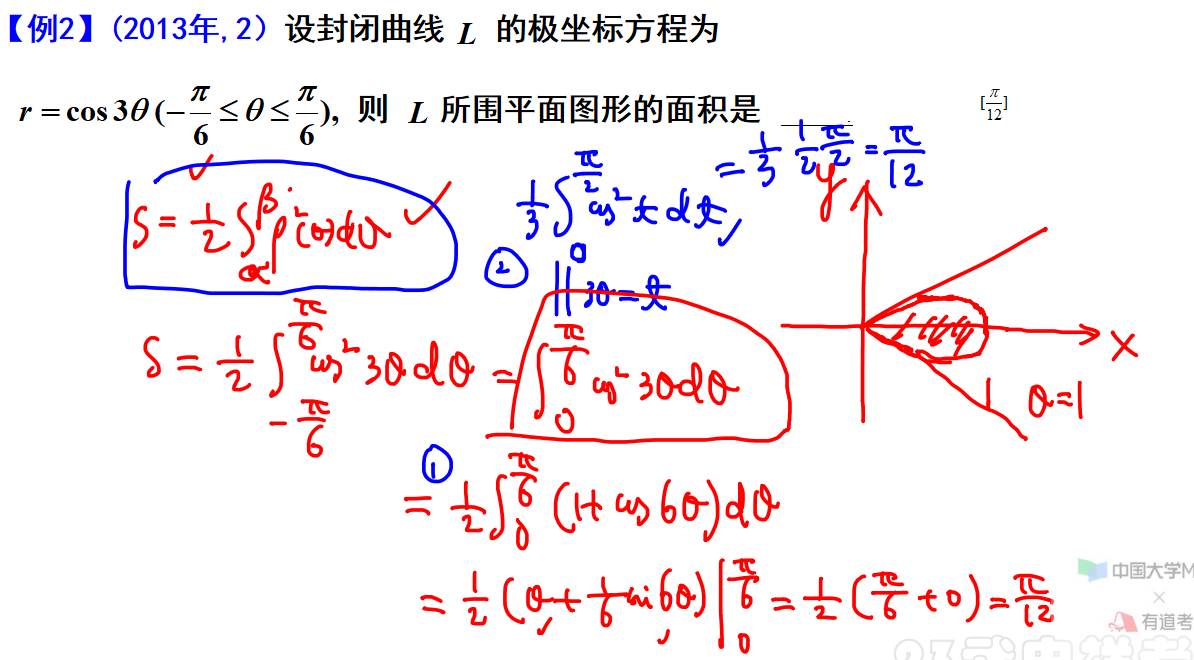 【例2】(2013年,2) 设封闭曲线 L 的极坐标方程为
r = cos3θ (-π/6 ≤ θ ≤ π/6), 则 L 所围平面图形的面积是 [π/12]
S = 1/2 ∫_α^β ρ²(θ)dθ
1/3 ∫_0^{π/2} cos² t dt, = 1/3 1/2 π/2 = π/12
② || 3θ = t
S = 1/2 ∫_{-π/6}^{π/6} cos² 3θ dθ = ∫_0^{π/6} cos² 3θ dθ
y
x
1 θ=1
① = 1/2 ∫_0^{π/6} (1 + cos 6θ) dθ
= 1/2 (θ + 1/6 sin 6θ) |_0^{π/6} = 1/2 (π/6 + 0) = π/12
中国大学M
×
有道考